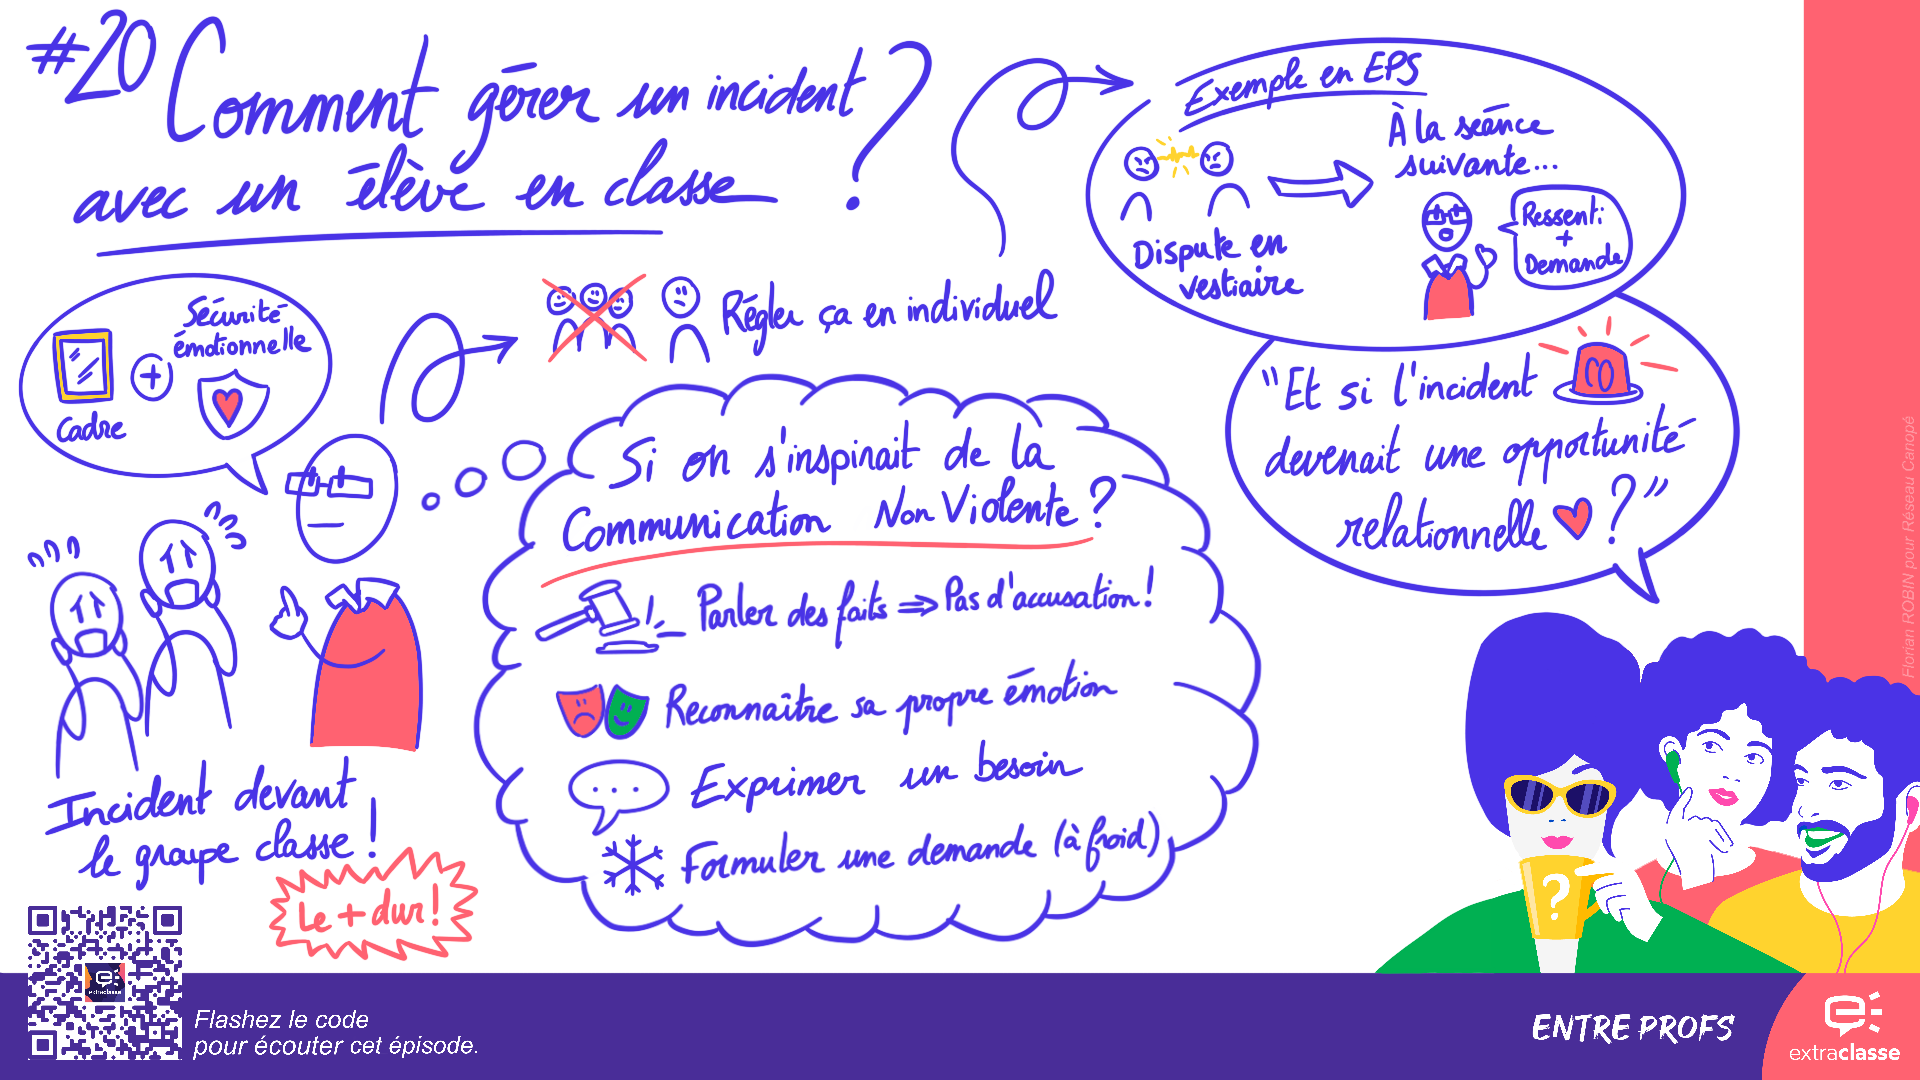 #20 Comment gérer un incident
avec un élève en classe ?
Sécurité
émotionnelle
+
Cadre
Régler ça en individuel
Exemple en EPS
Dispute en
vestiaire
À la séance
suivante...
Ressenti
+
Demande
"Et si l'incident
devenait une opportunité
relationnelle ?"
Si on s'inspirait de la
Communication Non Violente ?
Parler des faits ⇒ Pas d'accusation !
Reconnaître sa propre émotion
Exprimer un besoin
Formuler une demande (à froid)
Incident devant
le groupe classe !
Le + dur !
?
Florian ROBIN pour Réseau Canopé
extraclasse
Flashez le code
pour écouter cet épisode.
ENTRE PROFS
extraclasse